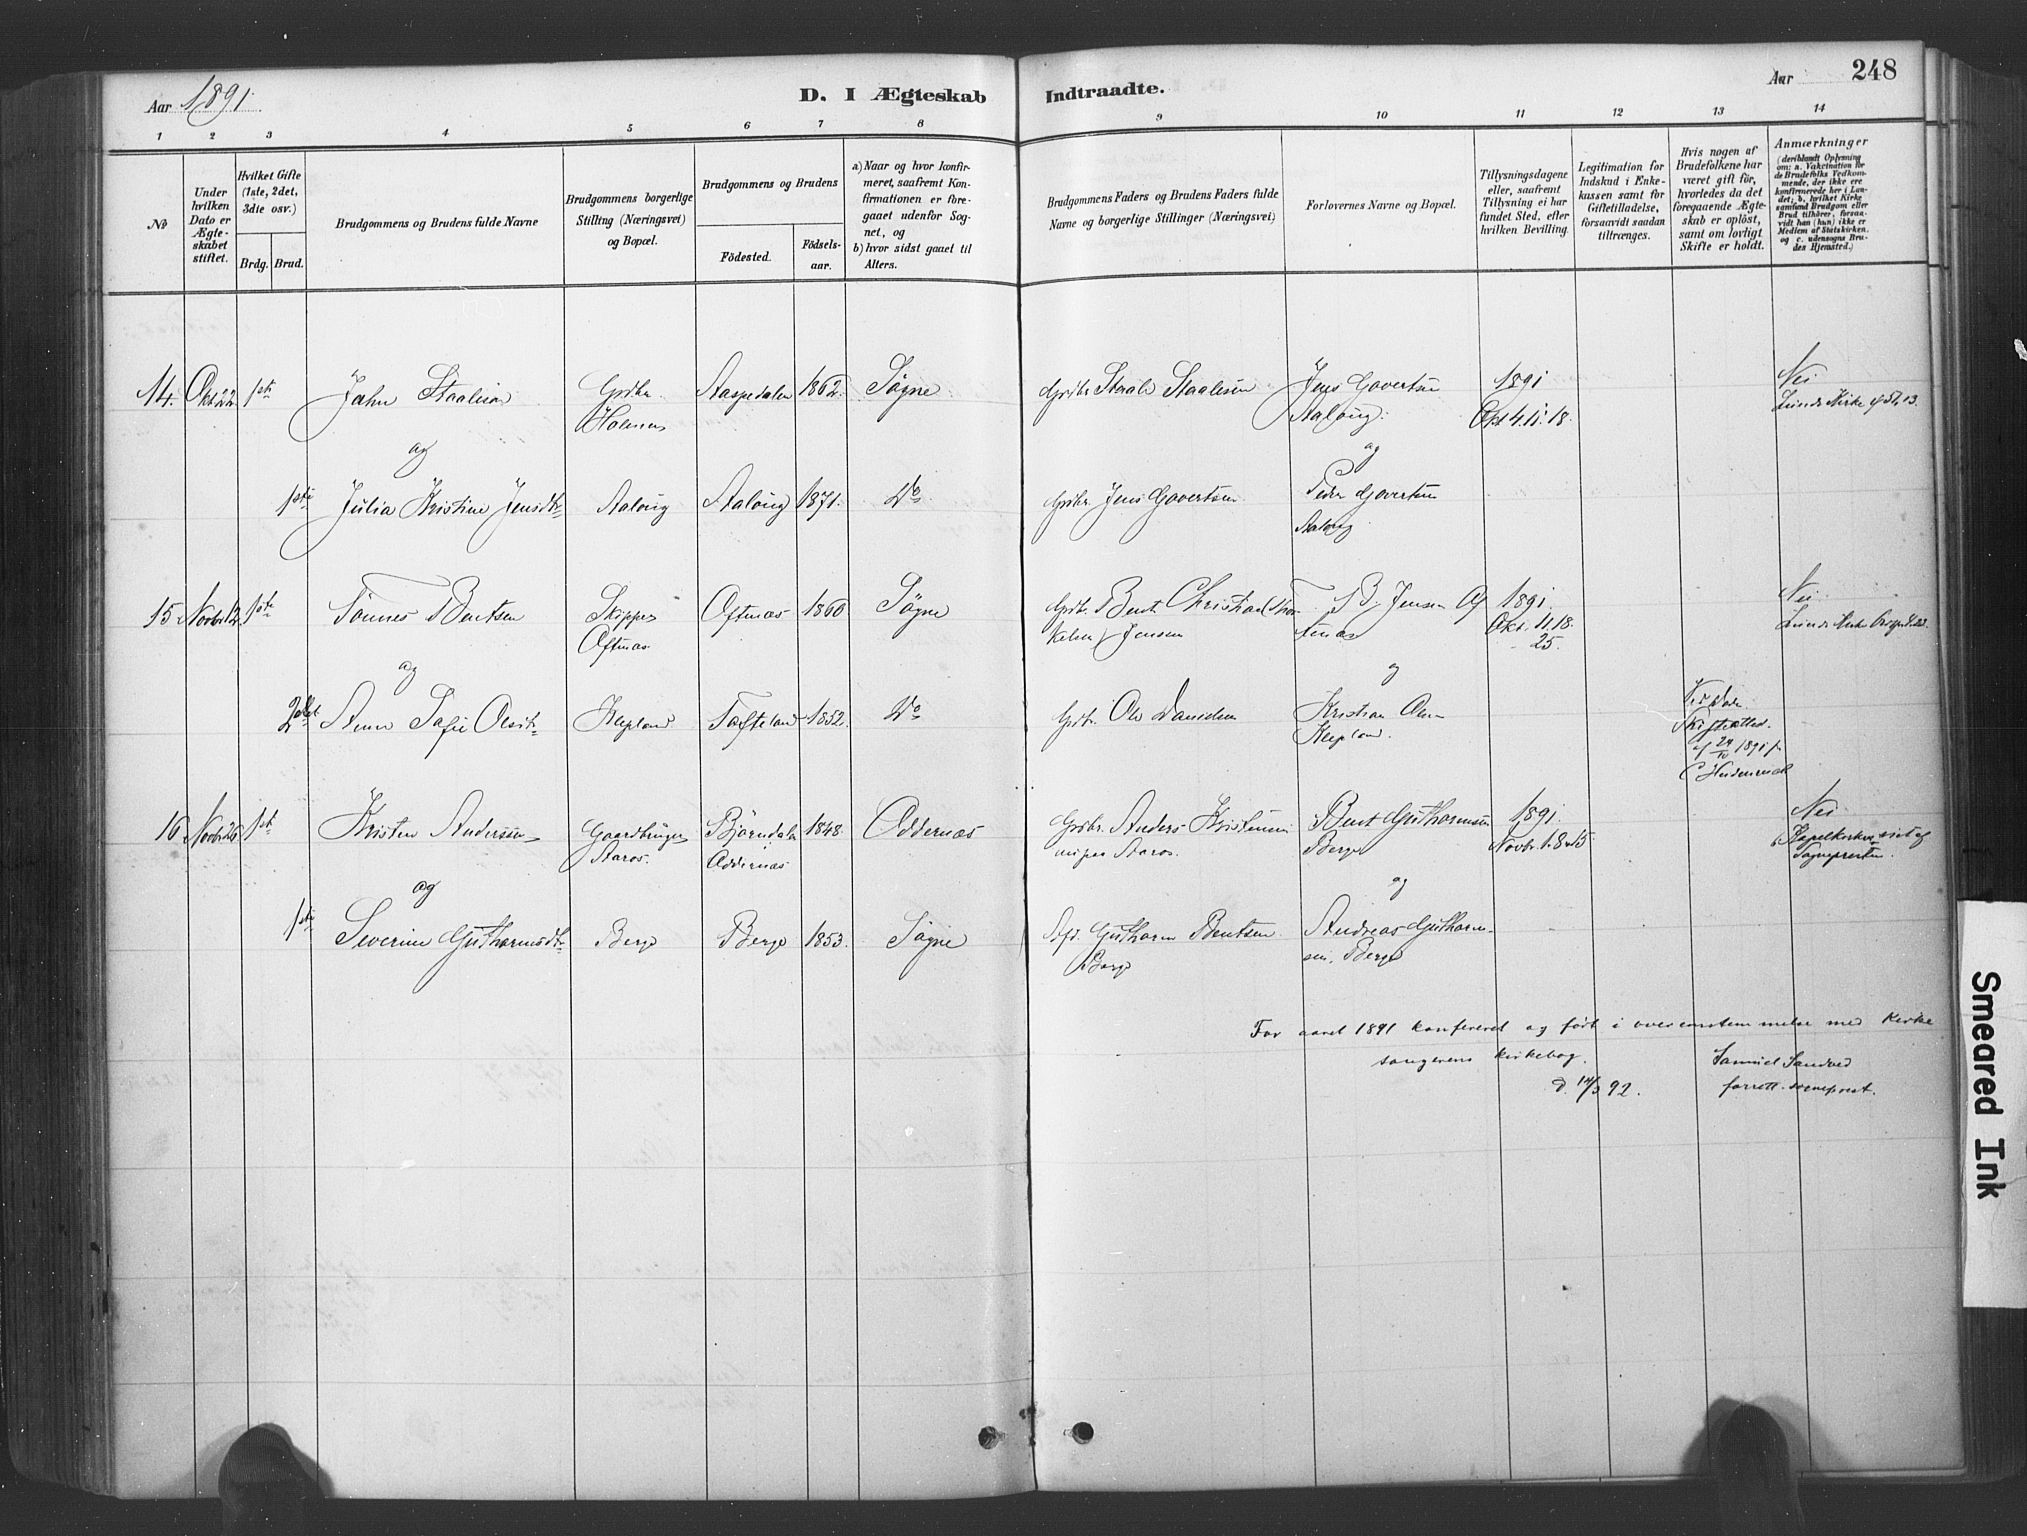 248
Aar 1891. D. I Ægteskab Indtraadte. Aar
1 2 3 4 5 6 7 8 9 10 11 12 13 14
№
Under hvilken Dato er Ægte-skabet stiftet.
Hvilket Gifte (1ste, 2det, 3die osv.)
Brdg. Brud.
Brudgommens og Brudens fulde Navne
Brudgommens borgerlige Stilling (Næringsvei) og Bopæl.
Brudgommens og Brudens
Födested.
Födsels-aar.
a) Naar og hvor konfir-meret, saafremt Kon-firmationen er fore-gaaet udenfor Sog-net, og
b) hvor sidst gaaet til Alters.
Brudgommens Faders og Brudens Faders fulde Navne og borgerlige Stillinger (Næringsvei)
Forlovernes Navne og Bopæl.
Tillysningsdagene eller, saafremt Tillysning ei har fundet Sted, efter hvilken Bevilling.
Legitimation for Indskud i Enke-kassen samt for Giftetilladelse, forsaavidt saadan tiltrænges.
Hvis nogen af Brudefolkene har været gift för, hvorledes da det foregaaende Ægte-skab er oplöst, samt om lovligt Skifte er holdt.
Anmærkninger
(deriblandt Oplysning om: a. Vakcination for de Brudefolks Vedkom-mende, der ikke ere konfirmerede her i Lan-det; b. hvilket Kirke-samfund Brudgom eller Brud tilhörer, forsaa-vidt han (hun) ikke er Medlem af Statskirken, og c. udensogns Bru-des Hjemsted.)
14. Okt 22. 1ste John Staalesen Grdbr. Aaspedalen 1862. Søgne Grdbr Staale Staalesen Jens Govertsen 1891 Nei
Holmen Aaløug. Okt 4. 11. 18. Lunds Kirke
og og
1ste Julia Kristine Jensdtr Aaløug Aaløug 1871. Do Grdbr. Jens Govertsen Peder Govertsen
Aaløug
15 Novbr 12. 1ste Tønnes Bentsen Skipper Oftenæs 1860 Søgne Grdbr. Bent Christian (Thor B. Jensen Of 1891. Nei
Oftenæs Jensen tenæs Okt. 11. 18. Lunds Kirke
25.
og og
2det Anne Sofie Olesdtr Klepland Tofteland 1852. Do Grdbr. Ole Danielsen Kristian Olsen
Klepland. Skifteatted.
af 24/10 1891 fr
C Heidenreich
16 Novbr 26 1ste Kristen Andersen Gaardbruger Bjørndalen 1848. Oddernæs Grdbr. Anders Kristensen Bent Guthormsen 1891. Nei
Aaros. Oddernæs Aaros. Berge Novbr. 1. 8. 15 Kapelkirken viet af
Sognepresten.
og og
1ste Severine Guthormsdtr Berge Berge 1853. Søgne Guthorm Bentsen Andreas Guthorm-
Berge sen. Berge
For aaret 1891 konfereret og ført i overensstemmelse med Kirke
sangerens kirkebog.
d. 14/3 92. Samuel Sandved
forrett. sogneprest.
Smeared Ink